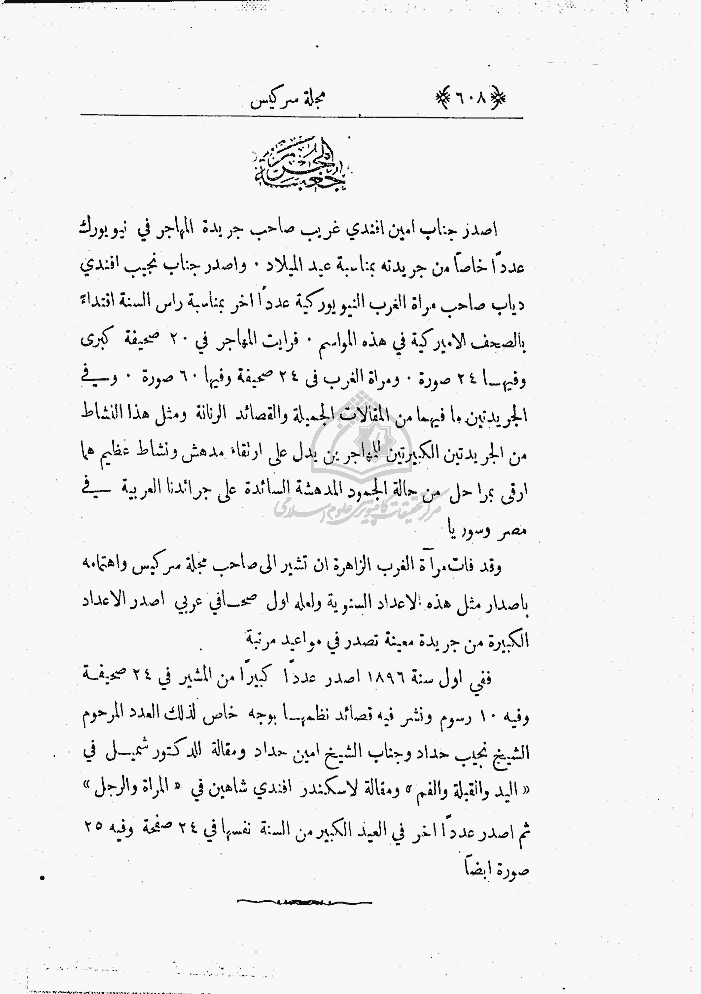 ﴿٦٠٨﴾ مجلة سركيس
جعبة المحرر
اصدر جناب امين افندي غريب صاحب جريدة المهاجر في نيويورك
عدداً خاصاً من جريدته بمناسبة عيد الميلاد ٠ واصدر جناب نجيب افندي
دياب صاحب مراة الغرب النيويوركية عدداً اخر بمناسبة راس السنة اقتداءً
بالصحف الاميركية في هذه المواسم ٠ فرايت المهاجر في ٢٠ صحيفة كبرى
وفيها ٢٤ صورة ٠ ومراة الغرب فى ٢٤ صحيفة وفيها ٦٠ صورة ٠ وفي
الجريدتين ما فيهما من المقالات الجميلة والقصائد الرنانة ومثل هذا النشاط
من الجريدتين الكبيرتين للمهاجرين يدل على ارتقاء مدهش ونشاط عظيم هما
ارقى بمراحل من حالة الجمود المدهشة السائدة على جرائدنا العربية في
مصر وسوريا
وقد فات مرآة الغرب الزاهرة ان تشير الى صاحب مجلة سركيس واهتمامه
باصدار مثل هذه الاعداد السنوية ولعله اول صحافي عربي اصدر الاعداد
الكبيرة من جريدة معينة تصدر في مواعيد مرتبة
ففي اول سنة ١٨٩٦ اصدر عدداً كبيراً من المشير في ٢٤ صحيفة
وفيه ١٠ رسوم ونشر فيه قصائد نظمها بوجه خاص لذلك العدد المرحوم
الشيخ نجيب حداد وجناب الشيخ امين حداد ومقالة للدكتور شميل في
« اليد والقبلة والفم » ومقالة لاسكندر افندي شاهين في « المراة والرجل »
ثم اصدر عدداً اخر في العيد الكبير من السنة نفسها في ٢٤ صفحة وفيه ٢٥
صورة ايضاً
مركز تحقيقات كامپيوتري علوم اسلامى